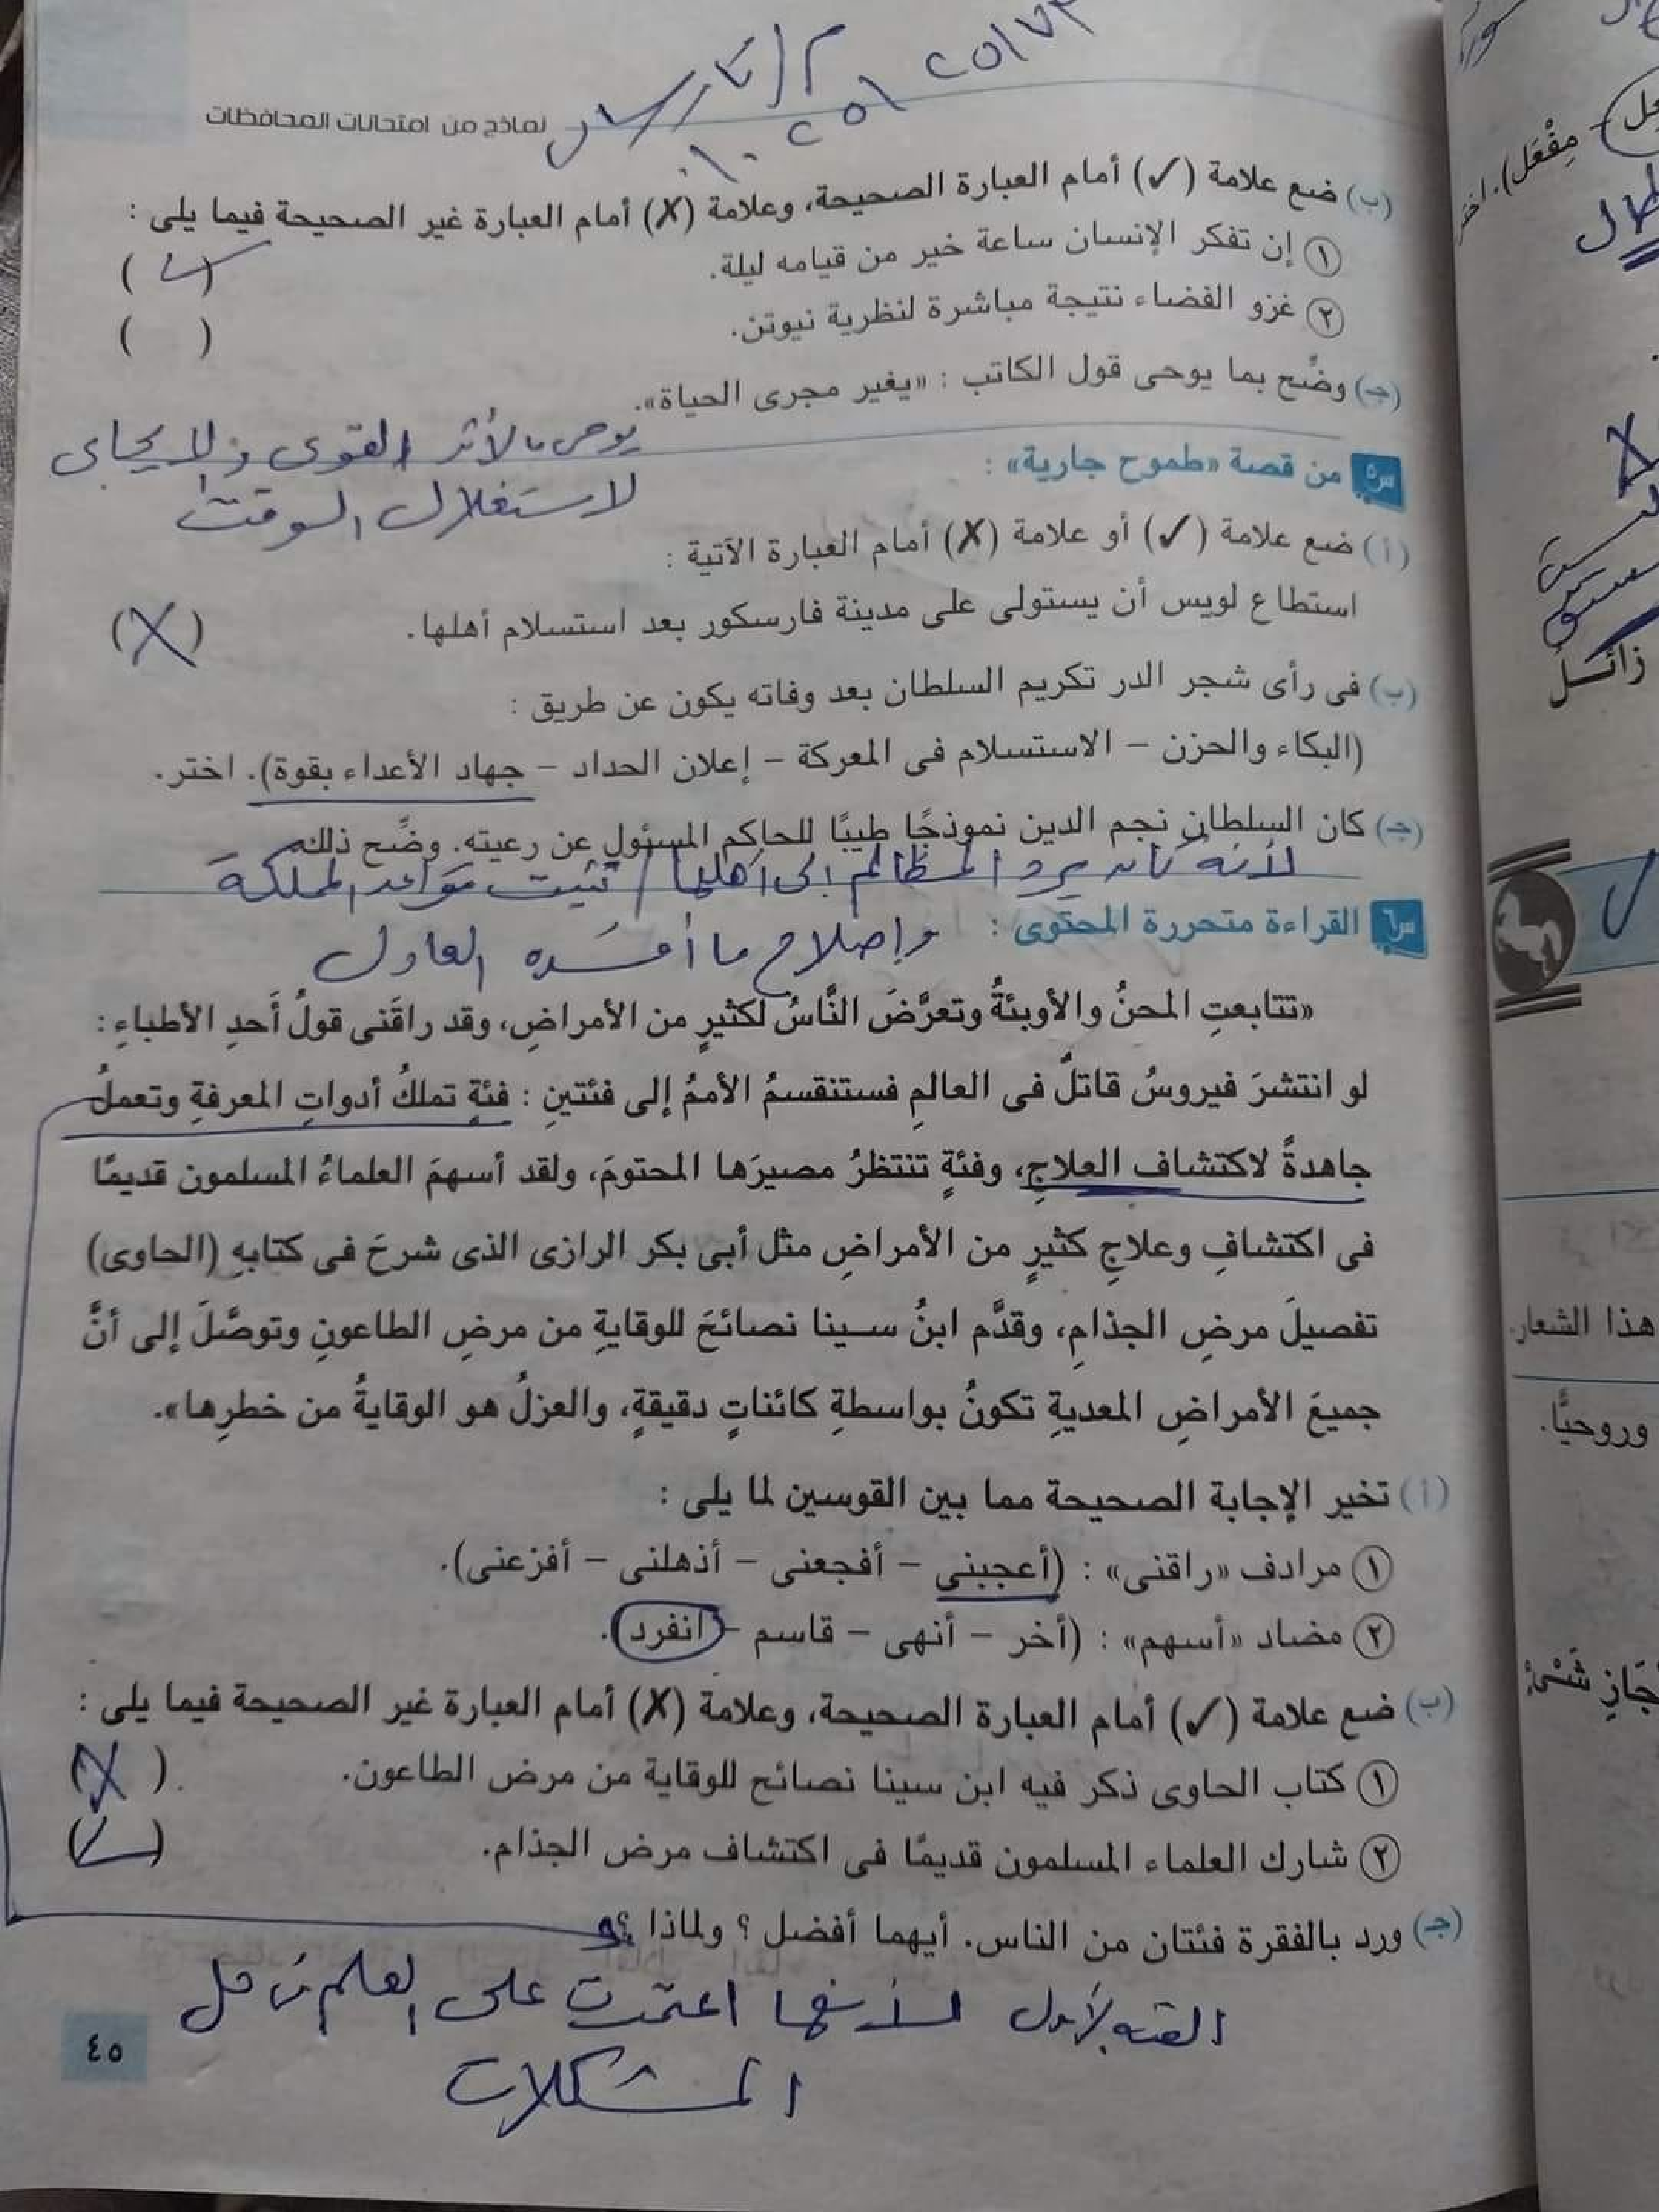 نماذج من امتحانات المحافظات
(ب) ضع علامة (✓) أمام العبارة الصحيحة، وعلامة (✗) أمام العبارة غير الصحيحة فيما يلى :
١ إن تفكر الإنسان ساعة خير من قيامه ليلة. (✓)
٢ غزو الفضاء نتيجة مباشرة لنظرية نيوتن. ( )
(جـ) وضِّح بما يوحى قول الكاتب : «يغير مجرى الحياة».
يوحى بالأثر القوى والايجابى
لاستغلال الوقت
س٥ من قصة «طموح جارية» :
(أ) ضع علامة (✓) أو علامة (✗) أمام العبارة الآتية :
استطاع لويس أن يستولى على مدينة فارسكور بعد استسلام أهلها. (X)
(ب) فى رأى شجر الدر تكريم السلطان بعد وفاته يكون عن طريق :
(البكاء والحزن – الاستسلام فى المعركة – إعلان الحداد – جهاد الأعداء بقوة). اختر.
(جـ) كان السلطان نجم الدين نموذجًا طيبًا للحاكم المسئول عن رعيته. وضِّح ذلك
لأنه كان يرد المظالم إلى أهلها / تثبيت قواعد المملكة
وإصلاح ما أفسده العادل
س٦ القراءة متحررة المحتوى :
«تتابعتِ المحنُ والأوبئةُ وتعرَّضَ النَّاسُ لكثيرٍ من الأمراضِ، وقد راقَنى قولُ أَحدِ الأطباءِ :
لو انتشرَ فيروسُ قاتلٌ فى العالمِ فستنقسمُ الأممُ إلى فئتينِ : فئةٍ تملكُ أدواتِ المعرفةِ وتعملُ
جاهدةً لاكتشاف العلاجِ، وفئةٍ تنتظرُ مصيرَها المحتومَ، ولقد أسهمَ العلماءُ المسلمون قديمًا
فى اكتشافِ وعلاجِ كثيرٍ من الأمراضِ مثل أبى بكر الرازى الذى شرحَ فى كتابهِ (الحاوى)
تفصيلَ مرضِ الجذامِ، وقدَّم ابنُ سينا نصائحَ للوقايةِ من مرضِ الطاعونِ وتوصَّلَ إلى أنَّ
جميعَ الأمراضِ المعديةِ تكونُ بواسطةِ كائناتٍ دقيقةٍ، والعزلُ هو الوقايةُ من خطرِها».
(أ) تخير الإجابة الصحيحة مما بين القوسين لما يلى :
١ مرادف «راقنى» : (أعجبنى – أفجعنى – أذهلنى – أفزعنى).
٢ مضاد «أسهم» : (أخر – أنهى – قاسم – انفرد).
(ب) ضع علامة (✓) أمام العبارة الصحيحة، وعلامة (✗) أمام العبارة غير الصحيحة فيما يلى :
١ كتاب الحاوى ذكر فيه ابن سينا نصائح للوقاية من مرض الطاعون. (X)
٢ شارك العلماء المسلمون قديمًا فى اكتشاف مرض الجذام. (✓)
(جـ) ورد بالفقرة فئتان من الناس. أيهما أفضل ؟ ولماذا ؟
الفئه الأولى لأنها اعتمدت على العلم فى حل
المشكلات
٤٥
مِفْعَل). اختر
زائل
هذا الشعار.
وروحيًّا.